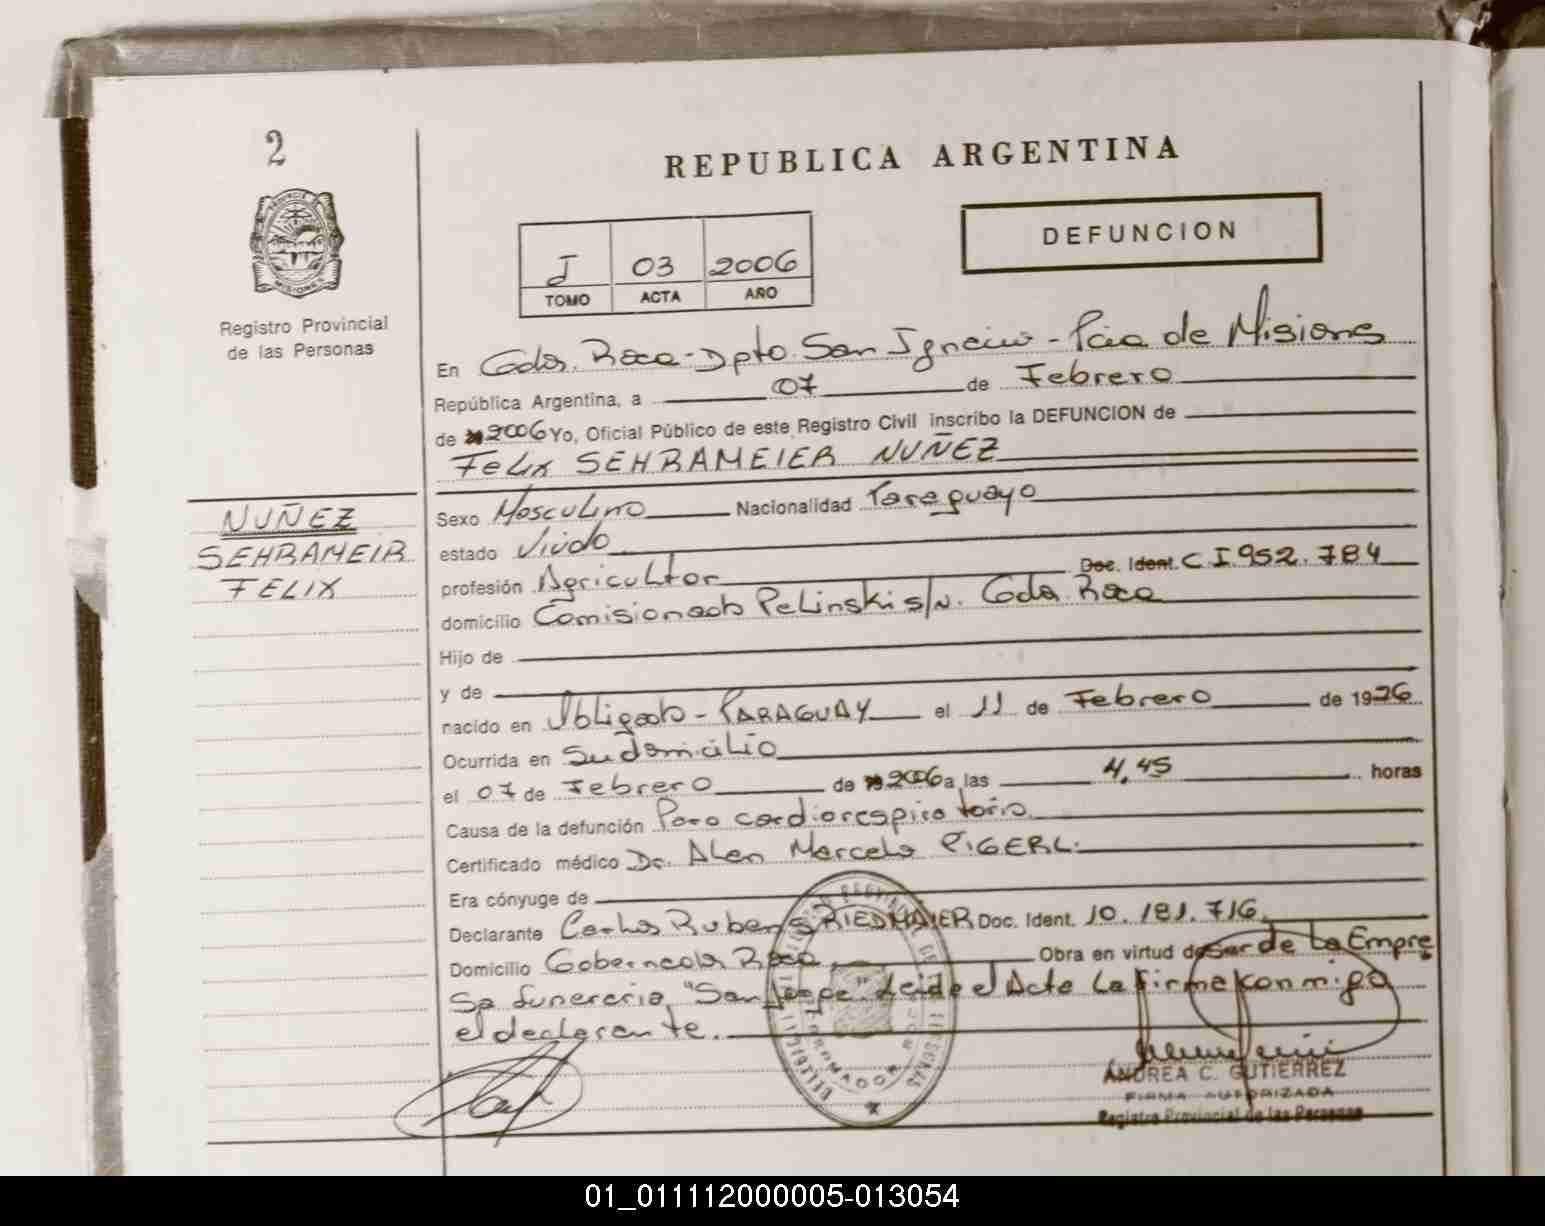 2
REPUBLICA ARGENTINA
DEFUNCION
I 03 2006
TOMO ACTA AÑO
Registro Provincial
de las Personas
En Gdor. Roca - Dpto. San Ignacio - Pcia de Misiones
República Argentina, a 07 de Febrero
de 2006 Yo, Oficial Público de este Registro Civil inscribo la DEFUNCION de
FELIX SEHRAMEIER NUÑEZ
NUÑEZ
SEHRAMEIR
FELIX
Sexo Masculino Nacionalidad Paraguayo
estado Viudo
profesión Agricultor Doc. Ident. C.I. 952.784
domicilio Comisionado Pelinski s/n. Gdor. Roca
Hijo de
y de
nacido en Obligado - PARAGUAY el 11 de Febrero de 1926
Ocurrida en su domicilio
el 07 de Febrero de 2006 a las 4,45 horas
Causa de la defunción Paro cardiorespiratorio
Certificado médico Dr. Alen Marcelo PIGERL.
Era cónyuge de
Declarante Carlos Ruben RIEDMAIER Doc. Ident. 10.181.716
Domicilio Gobernador Roca Obra en virtud de ser de la Empre
sa funeraria "San Jorge" Leida el Acta La firma conmigo
el declarante.
ANDREA C. GUTIERREZ
FIRMA AUTORIZADA
Registro Provincial de las Personas
01_011112000005-013054